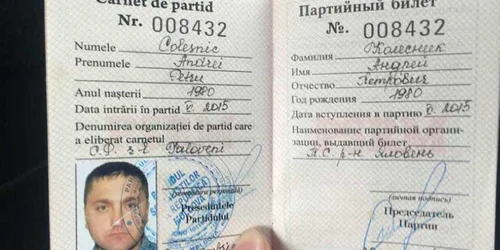 Carnet de partid
Nr. 008432
Numele Colesnic
Prenumele Andrei
Petru
Anul nașterii 1980
Data intrării în partid V. 2015
Denumirea organizației de partid care
a eliberat carnetul
Ialoveni
(semnătura personală)
Președintele
Partidului
Партийный билет
№. 008432
Фамилия Колесник
Имя Андрей
Отчество Петрович
Год рождения 1980
Дата вступления в партию V. 2015
Наименование партийной органи-
зации, выдавший билет
П.С. р-н Яловень
(личная подпись)
Председатель
Партии